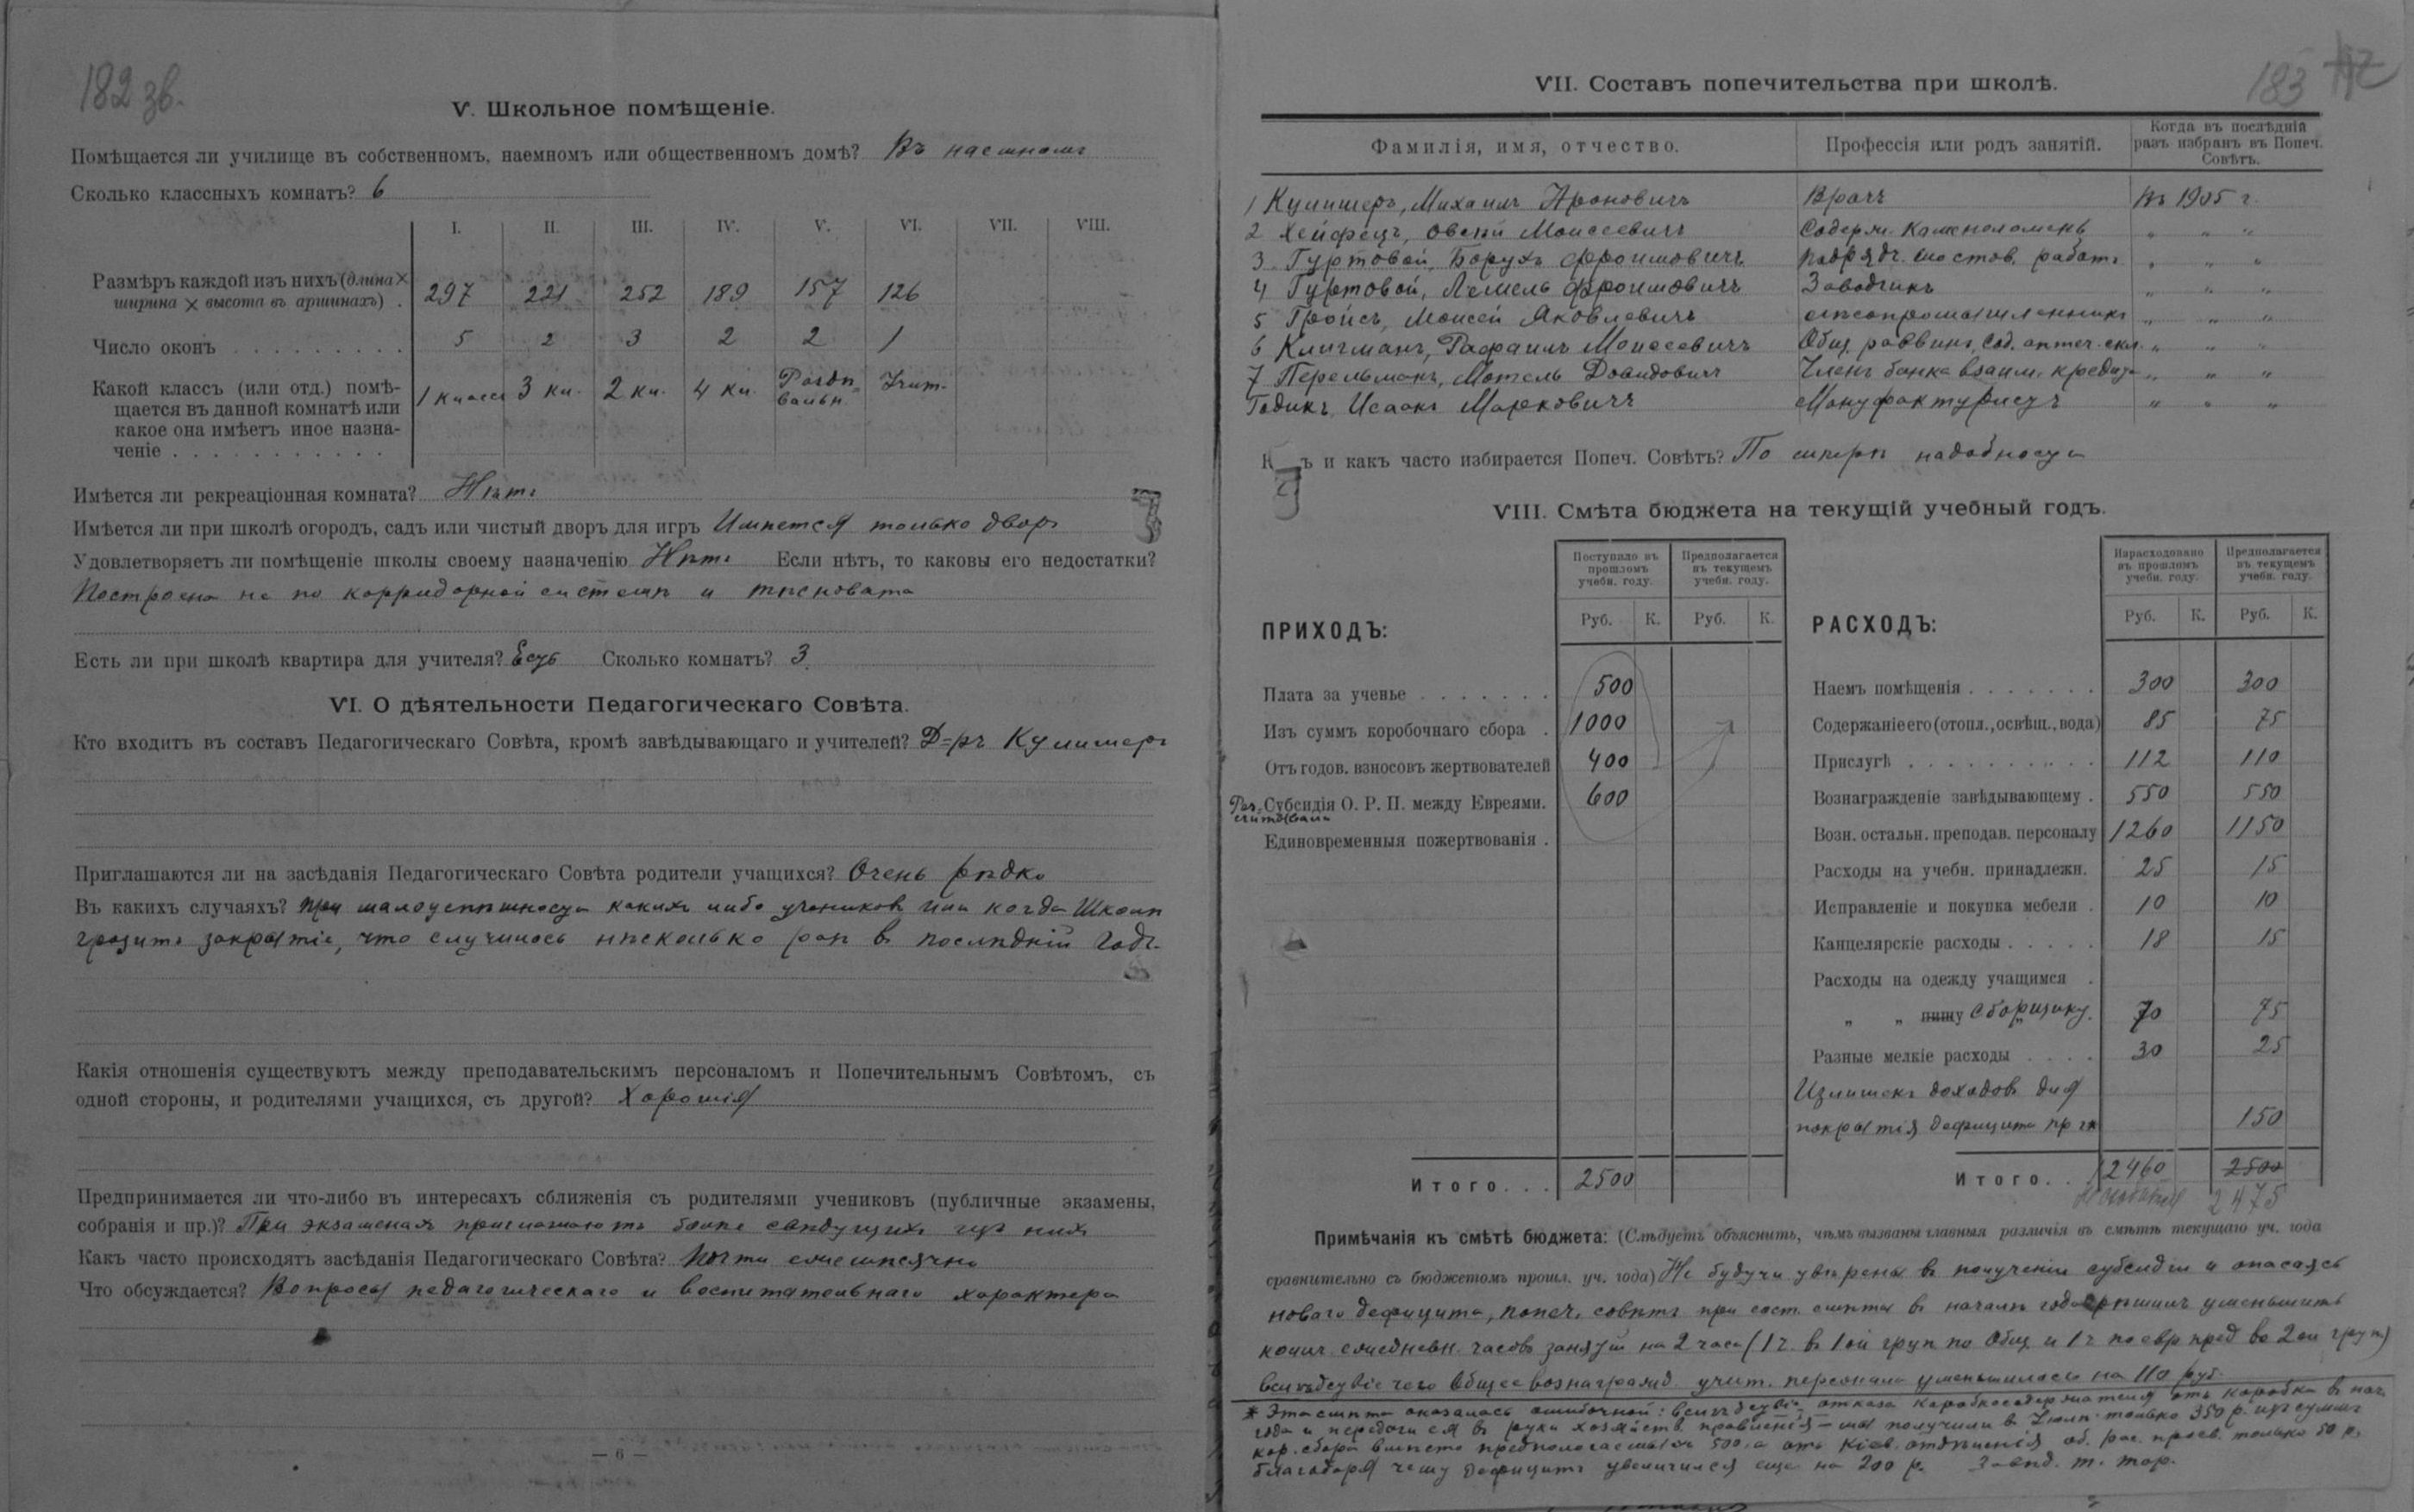 182 зв.
V. Школьное помѣщеніе.
Помѣщается ли училище въ собственномъ, наемномъ или общественномъ домѣ? Въ наемномъ
Сколько классныхъ комнатъ? 6
I. II. III. IV. V. VI. VII. VIII.
Размѣръ каждой изъ нихъ (длина ×
ширина × высота въ аршинахъ) . 297 221 252 189 157 126
Число оконъ . . . . . . . . . 5 2 3 2 2 1
Какой классъ (или отд.) помѣ-
щается въ данной комнатѣ или
какое она имѣетъ иное назна-
ченіе . . . . . . . . . . . 1 классъ 3 кл. 2 кл. 4 кл. Раздѣвальн.
Имѣется ли рекреаціонная комната? Нѣтъ
Имѣется ли при школѣ огородъ, садъ или чистый дворъ для игръ Имѣется только дворъ
Удовлетворяетъ ли помѣщеніе школы своему назначенію Нѣтъ Если нѣтъ, то каковы его недостатки?
Построена не по корридорной системѣ и тѣсновата
Есть ли при школѣ квартира для учителя? Есть Сколько комнатъ? 3
VI. О дѣятельности Педагогическаго Совѣта.
Кто входитъ въ составъ Педагогическаго Совѣта, кромѣ завѣдывающаго и учителей? Д=ръ Кулишеръ
Приглашаются ли на засѣданія Педагогическаго Совѣта родители учащихся? Очень рѣдко
Въ какихъ случаяхъ? При малоуспѣшности какихъ либо учениковъ или когда Школѣ
грозитъ закрытіе, что случилось нѣсколько разъ въ послѣдній годъ.
Какія отношенія существуютъ между преподавательскимъ персоналомъ и Попечительнымъ Совѣтомъ, съ
одной стороны, и родителями учащихся, съ другой? Хорошія
Предпринимается ли что-либо въ интересахъ сближенія съ родителями учениковъ (публичные экзамены,
собранія и пр.)? При экзаменахъ приглашаютъ болѣе свѣдущихъ изъ нихъ
Какъ часто происходятъ засѣданія Педагогическаго Совѣта? Почти ежемѣсячно
Что обсуждается? Вопросы педагогическаго и воспитательнаго характера
— 6 —
183
VII. Составъ попечительства при школѣ.
Фамилія, имя, отчество. Профессія или родъ занятій. Когда въ послѣдній
разъ избранъ въ Попеч.
Совѣтъ.
1 Кулишеръ, Михаилъ Ароновичъ Врачъ Въ 1905 г.
2 Хейфецъ, Овсей Моисеевичъ Содерж. Каменоломень " " "
3 Гуртовой, Борухъ Фроимовичъ Подрядч. мостов. работъ " " "
4 Гуртовой, Лемель Фроимовичъ Заводчикъ " " "
5 Гройсъ, Моисей Яковлевичъ лѣсопромышленникъ " " "
6 Клигманъ, Рафаилъ Моисеевичъ Общ. раввинъ, Сод. аптеч. скл. " " "
7 Перельманъ, Мотель Давидовичъ Членъ банка взаим. кредита " " "
Годикъ, Исаакъ Марковичъ Мануфактуристъ " " "
ъ и какъ часто избирается Попеч. Совѣтъ? По мѣрѣ надобности
VIII. Смѣта бюджета на текущій учебный годъ.
Поступило въ
прошломъ
учебн. году. Предполагается
въ текущемъ
учебн. году.
Руб. К. Руб. К.
ПРИХОДЪ:
Плата за ученье . . . . . . . 500
Изъ суммъ коробочнаго сбора . 1000
Отъ годов. взносовъ жертвователей 400
Субсидія О. Р. П. между Евреями. 600
Единовременныя пожертвованія .
Итого. . . 2500
Израсходовано
въ прошломъ
учебн. году. Предполагается
въ текущемъ
учебн. году.
Руб. К. Руб. К.
РАСХОДЪ:
Наемъ помѣщенія . . . . . . . 300 300
Содержаніе его (отопл., освѣщ., вода) 85 75
Прислугѣ . . . . . . . . . . 112 110
Вознагражденіе завѣдывающему . 550 550
Возн. остальн. преподав. персоналу 1260 1150
Расходы на учебн. принадлежн. 25 15
Исправленіе и покупка мебели . 10 10
Канцелярскіе расходы . . . . . 18 15
Расходы на одежду учащимся .
" " пищу Сборщику. 70 75
Разные мелкіе расходы . . . . 30 25
Излишекъ доходовъ для
покрытія дефицита 150
Итого. . 2460 2500
2475
Примѣчанія къ смѣтѣ бюджета: (Слѣдуетъ объяснить, чѣмъ вызваны главныя различія въ смѣтѣ текущаго уч. года
сравнительно съ бюджетомъ прошл. уч. года) Не будучи увѣрены въ полученіи субсидіи и опасаясь
новаго дефицита, попеч. совѣтъ при сост. смѣты въ началѣ года рѣшилъ уменьшить
колич. ежедневн. часовъ занятій на 2 часа (1 ч. въ 1ой груп по Общ и 1 ч по евр пред во 2ой груп)
вслѣдствіе чего Общее вознагражд. учит. персонала уменьшилось на 110 руб.
* Эта смѣта оказалась ошибочной: вслѣдствіе отказа коробкосодержателя отъ коробки въ нач.
года и передачи ея въ руки хозяйств. правленія – мы получили въ Іюлѣ только 350 р. изъ суммъ
кор. сбора вмѣсто предполагаемыхъ 500, а отъ Кіев. отдѣленія об. рас. просв. только 50 р.
благодаря чему дефицитъ увеличился еще на 200 р.